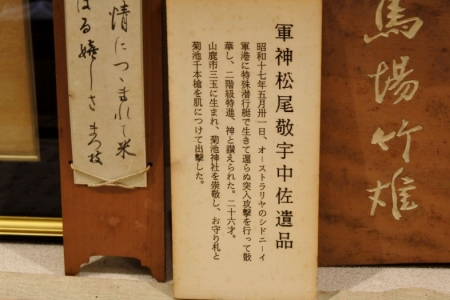 馬場竹雄
軍神松尾敬宇中佐遺品
昭和十七年五月卅一日、オーストラリヤのシドニーイ
軍港に特殊潜行艇で生きて還らぬ突入攻撃を行って散
華し、二階級特進、神と讃えられた。二十六才。
山鹿市三玉に生まれ、菊池神社を崇敬し、お守り札と
菊池千本槍を肌につけて出撃した。
情につゝまれて米
はる嬉しさ